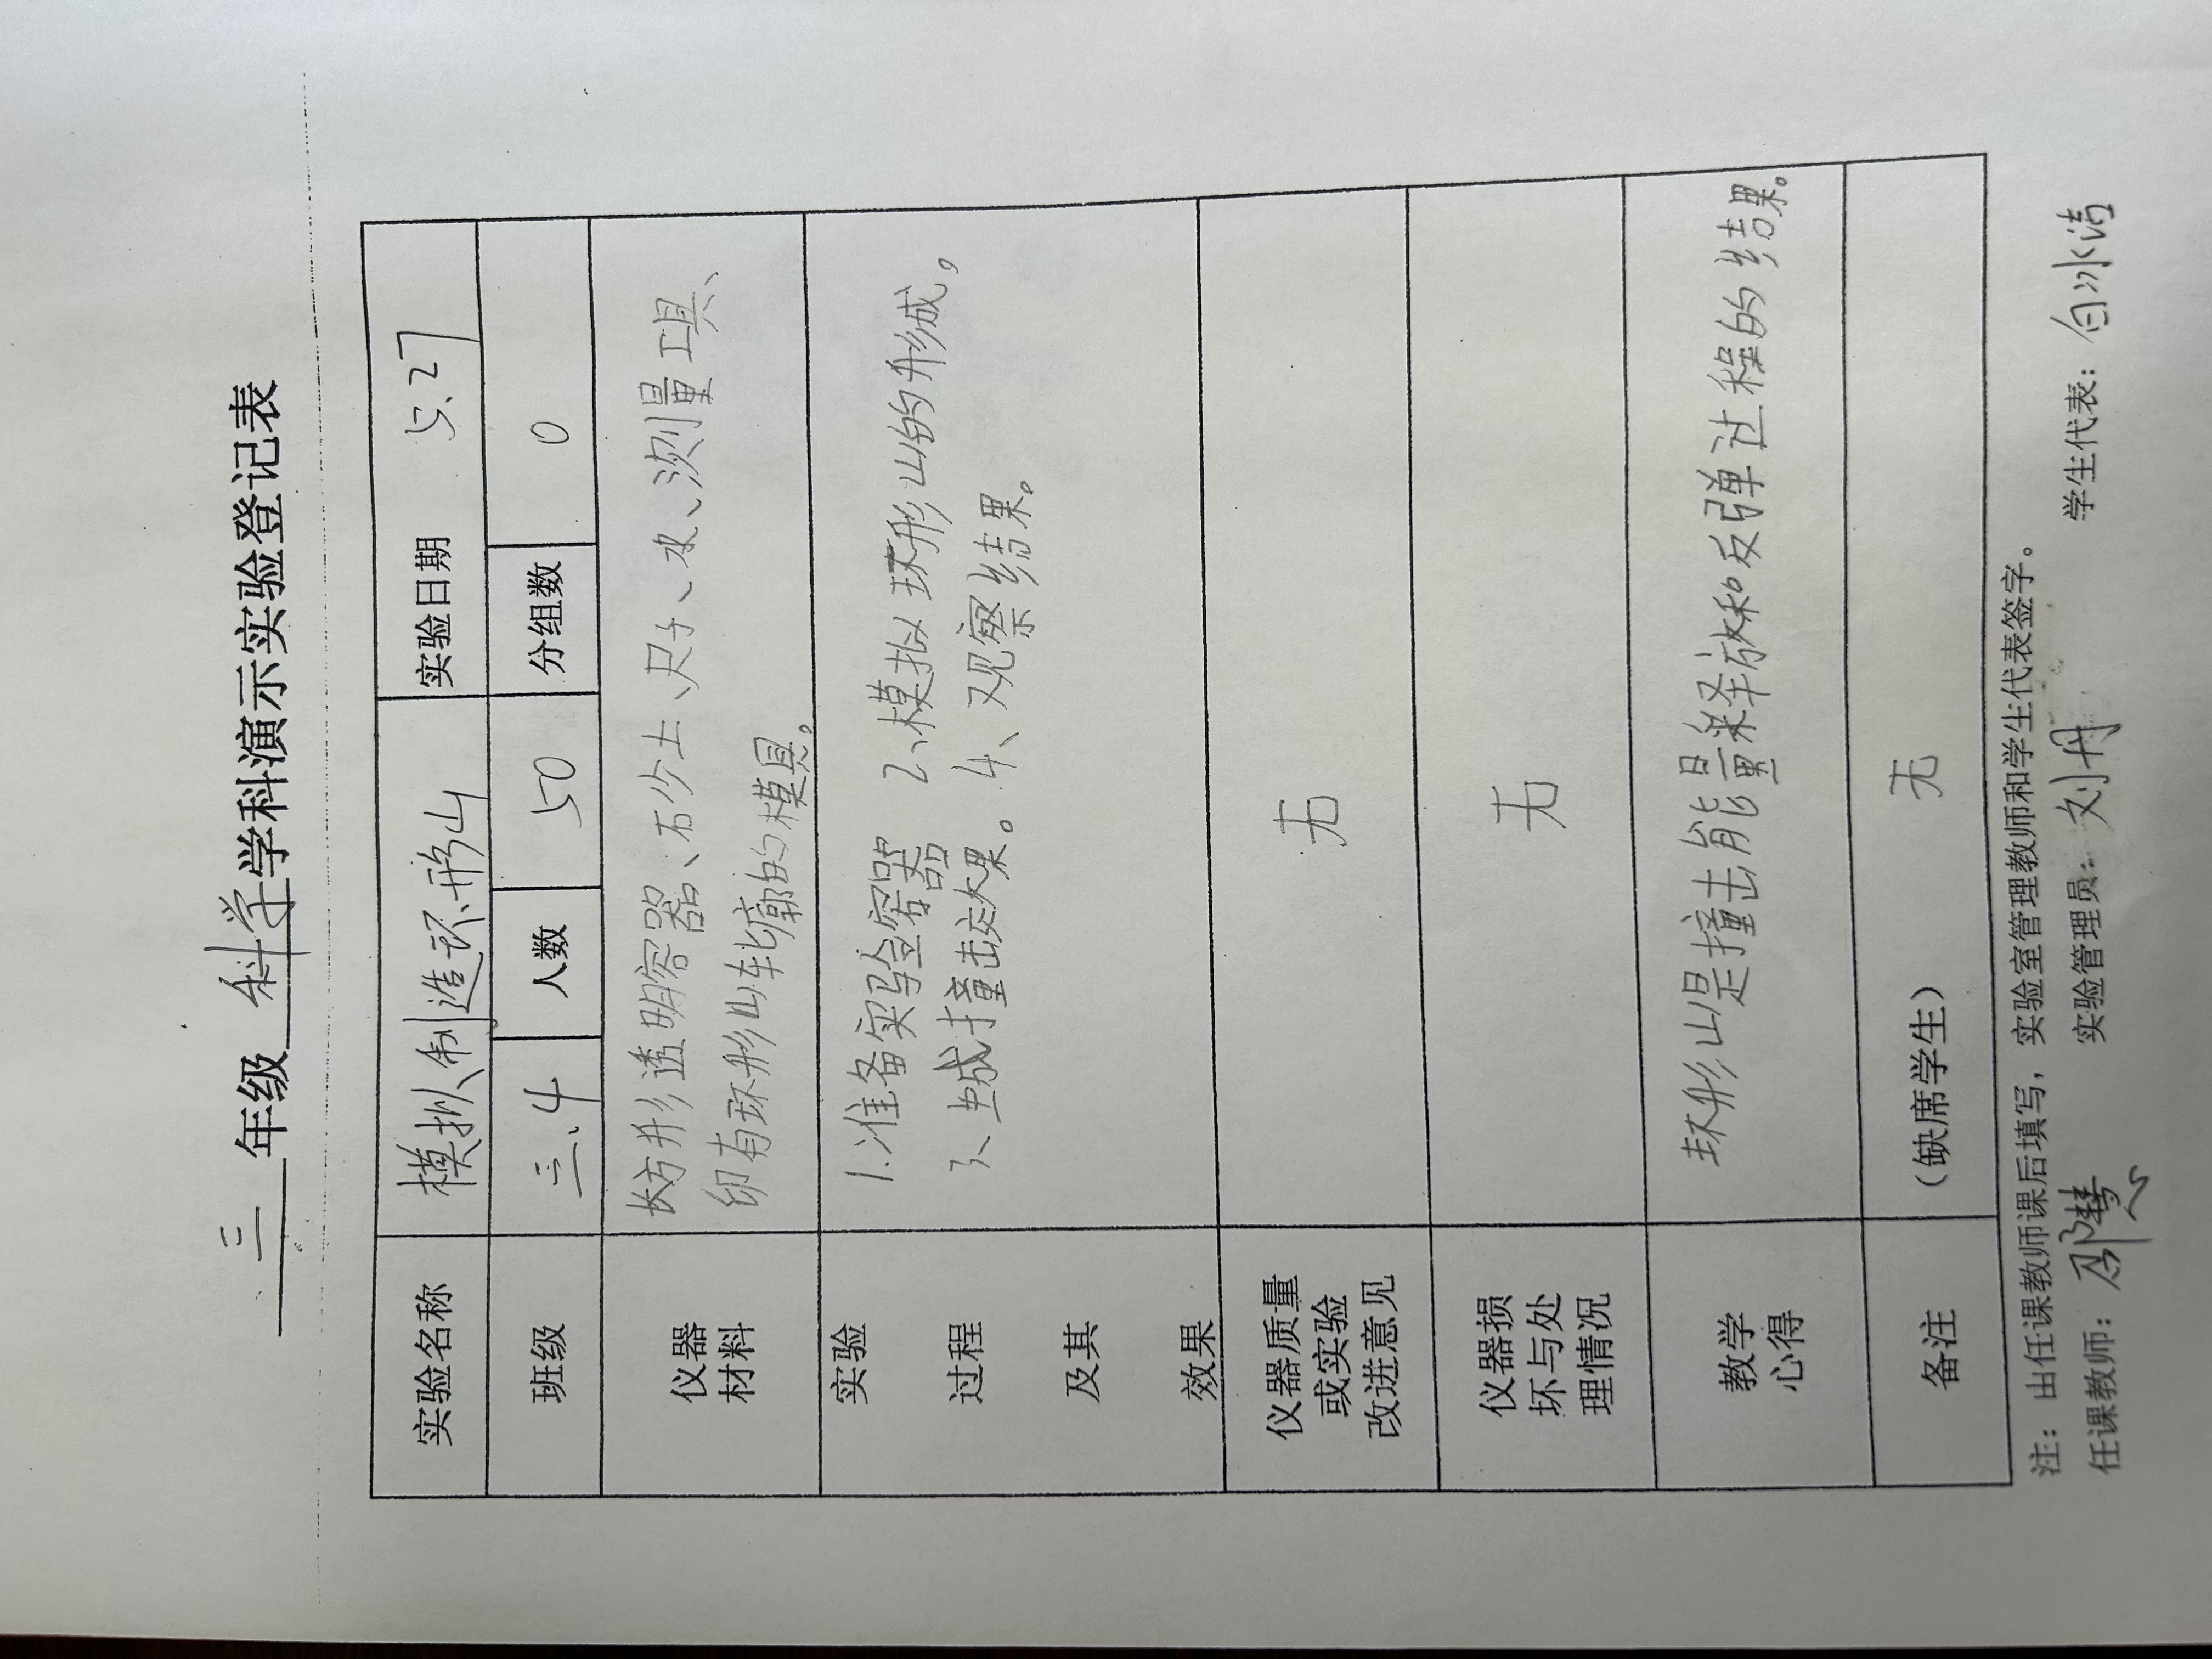 三 年级 科学 学科演示实验登记表
实验名称 模拟制造环形山 实验日期 5.27
班级 三.4 人数 50 分组数 0
仪器 长方形透明容器、砂土、尺子、水、测量工具、
材料 印有环形山轮廓的模具。
实验 1.准备实验容器 2、模拟环形山的形成。
过程 3、生成撞击效果。 4、观察结果。
及其
效果
仪器质量
或实验 无
改进意见
仪器损
坏与处 无
理情况
教学 环形山是撞击能量释放和反弹过程的结果。
心得
备注 (缺席学生) 无
注：由任课教师课后填写，实验室管理教师和学生代表签字。
任课教师： 实验管理员：刘丹 学生代表：白冰洁